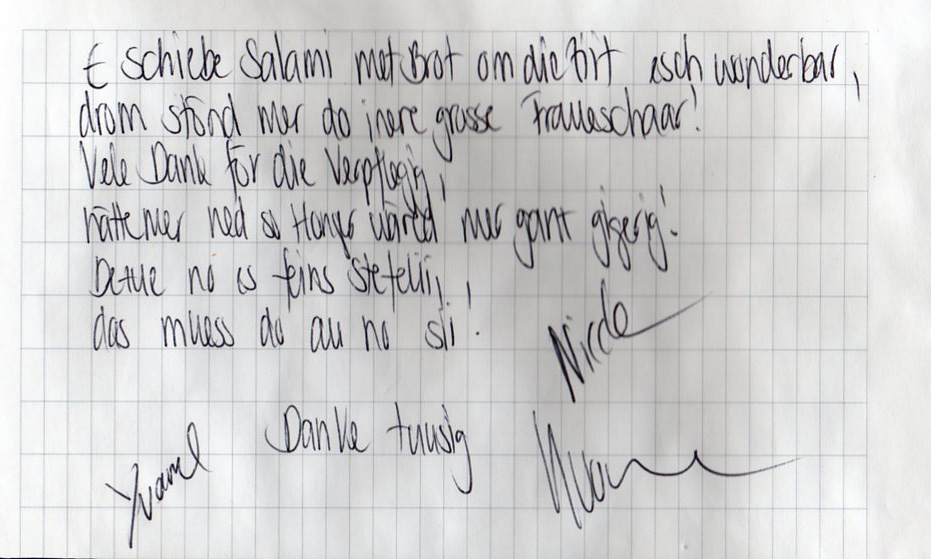 E schiebe Salami met Brot om die Ziit esch wonderbar,
drom stönd mer do inere grosse Fraueschaar!
Vele Dank för die Verpflegig,
hätte mer ned so Honger wärid mer ganz gigerig!
Detue no es feins Stefelii,
das muess do au no sii!
Nicole
Danke tuusig
Yvonne